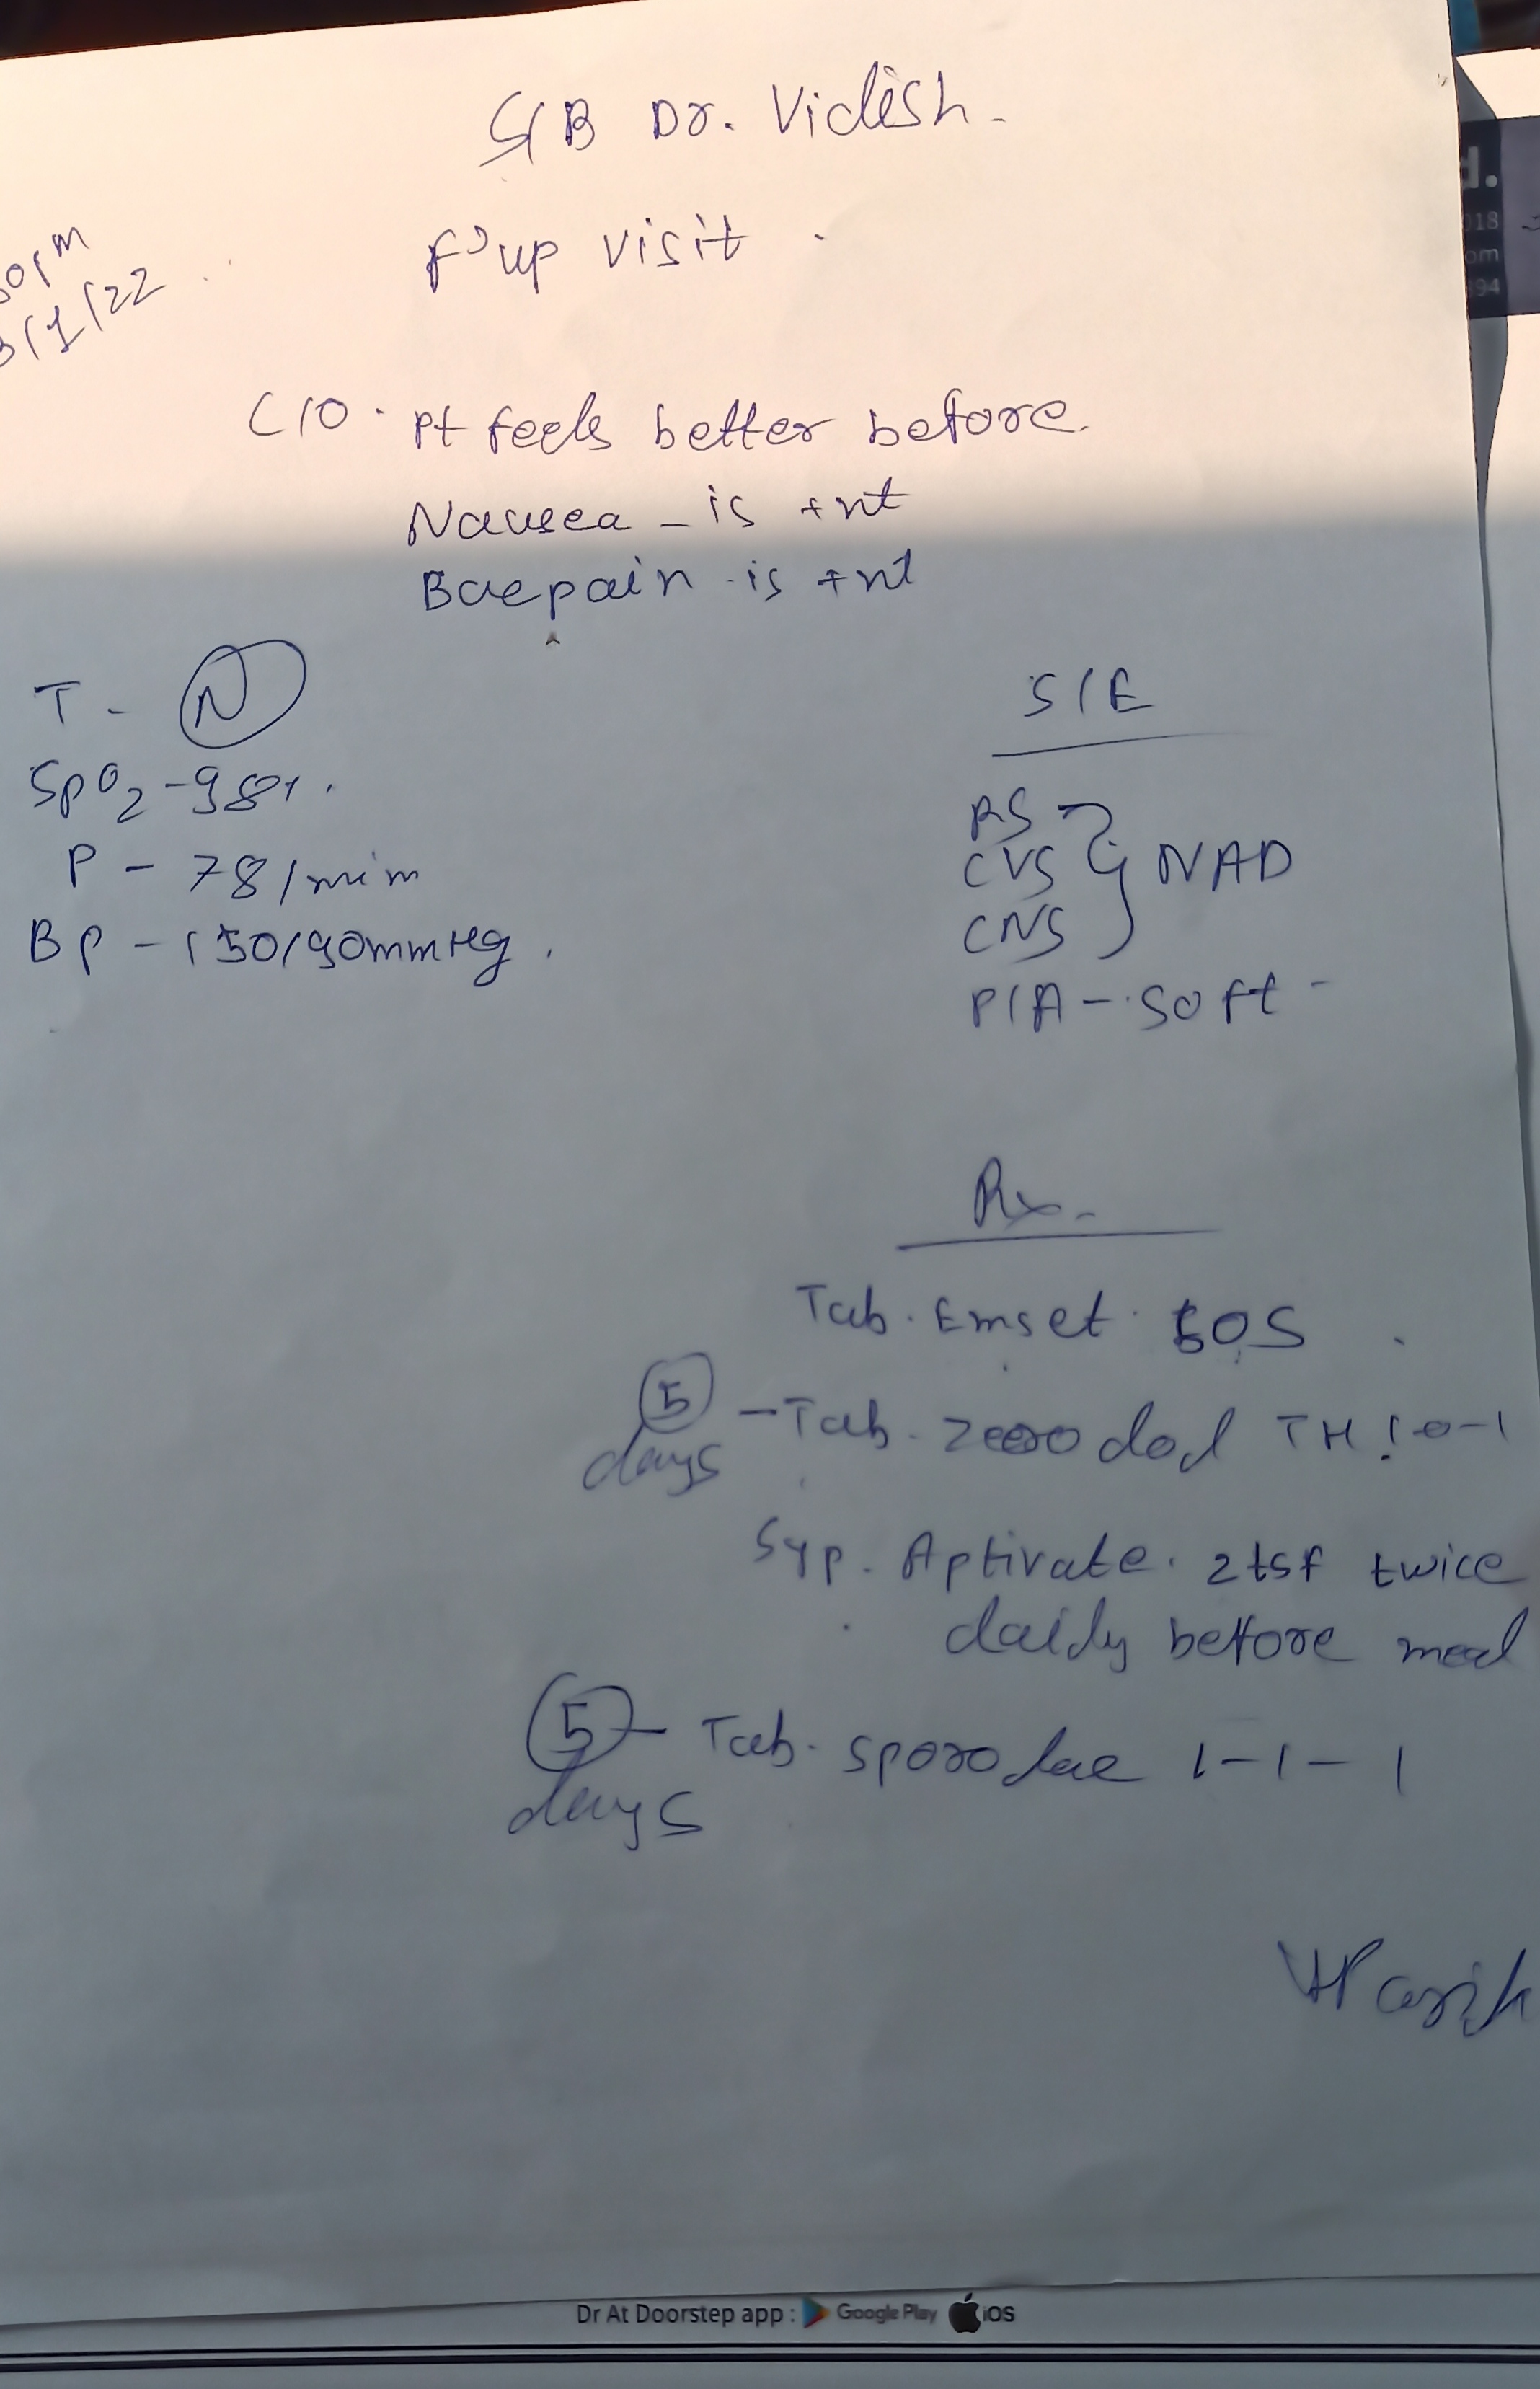 S/B Dr. Vidish.
F'up visit.
/1/22
C/O. Pt feels better before.
Nausea - is +nt
Bacpain - is +nt
T - N
SpO2 - 98%.
P - 78/min
BP - 150/90mmHg.
S/E
RS
CVS } NAD
CNS
P/A - soft -
Rx.
Tab. Emset. SOS
5 days - Tab. Zerodol TH 1-0-1
Syp. Aptivate. 2tsf twice
daily before meal
5 days - Tab. Sporolac 1-1-1
d.
018
om
194
Dr At Doorstep app : Google Play iOS